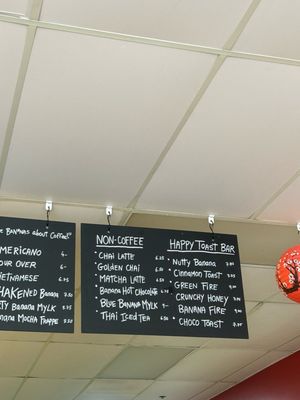 E BANANAS ABOUT COFFEE!
MERICANO 4.
OUR OVER 6.
IETNAMESE 6.25
HAKENED BANANA
TY BANANA MYLK
ANANA MOCHA FRAPPE 6.75
NON-COFFEE
* CHAI LATTE 6.25
* GOLDEN CHAI 6.50
* MATCHA LATTE 6.50
* BANANA HOT CHOCOLATE
* BLUE BANANA MYLK
* THAI ICED TEA 6.50
HAPPY TOAST BAR
* NUTTY BANANA 9.00
* CINNAMON TOAST
* GREEN FIRE 9.
* CRUNCHY HONEY 9.
* BANANA FIRE 9.
* CHOCO TOAST 9.